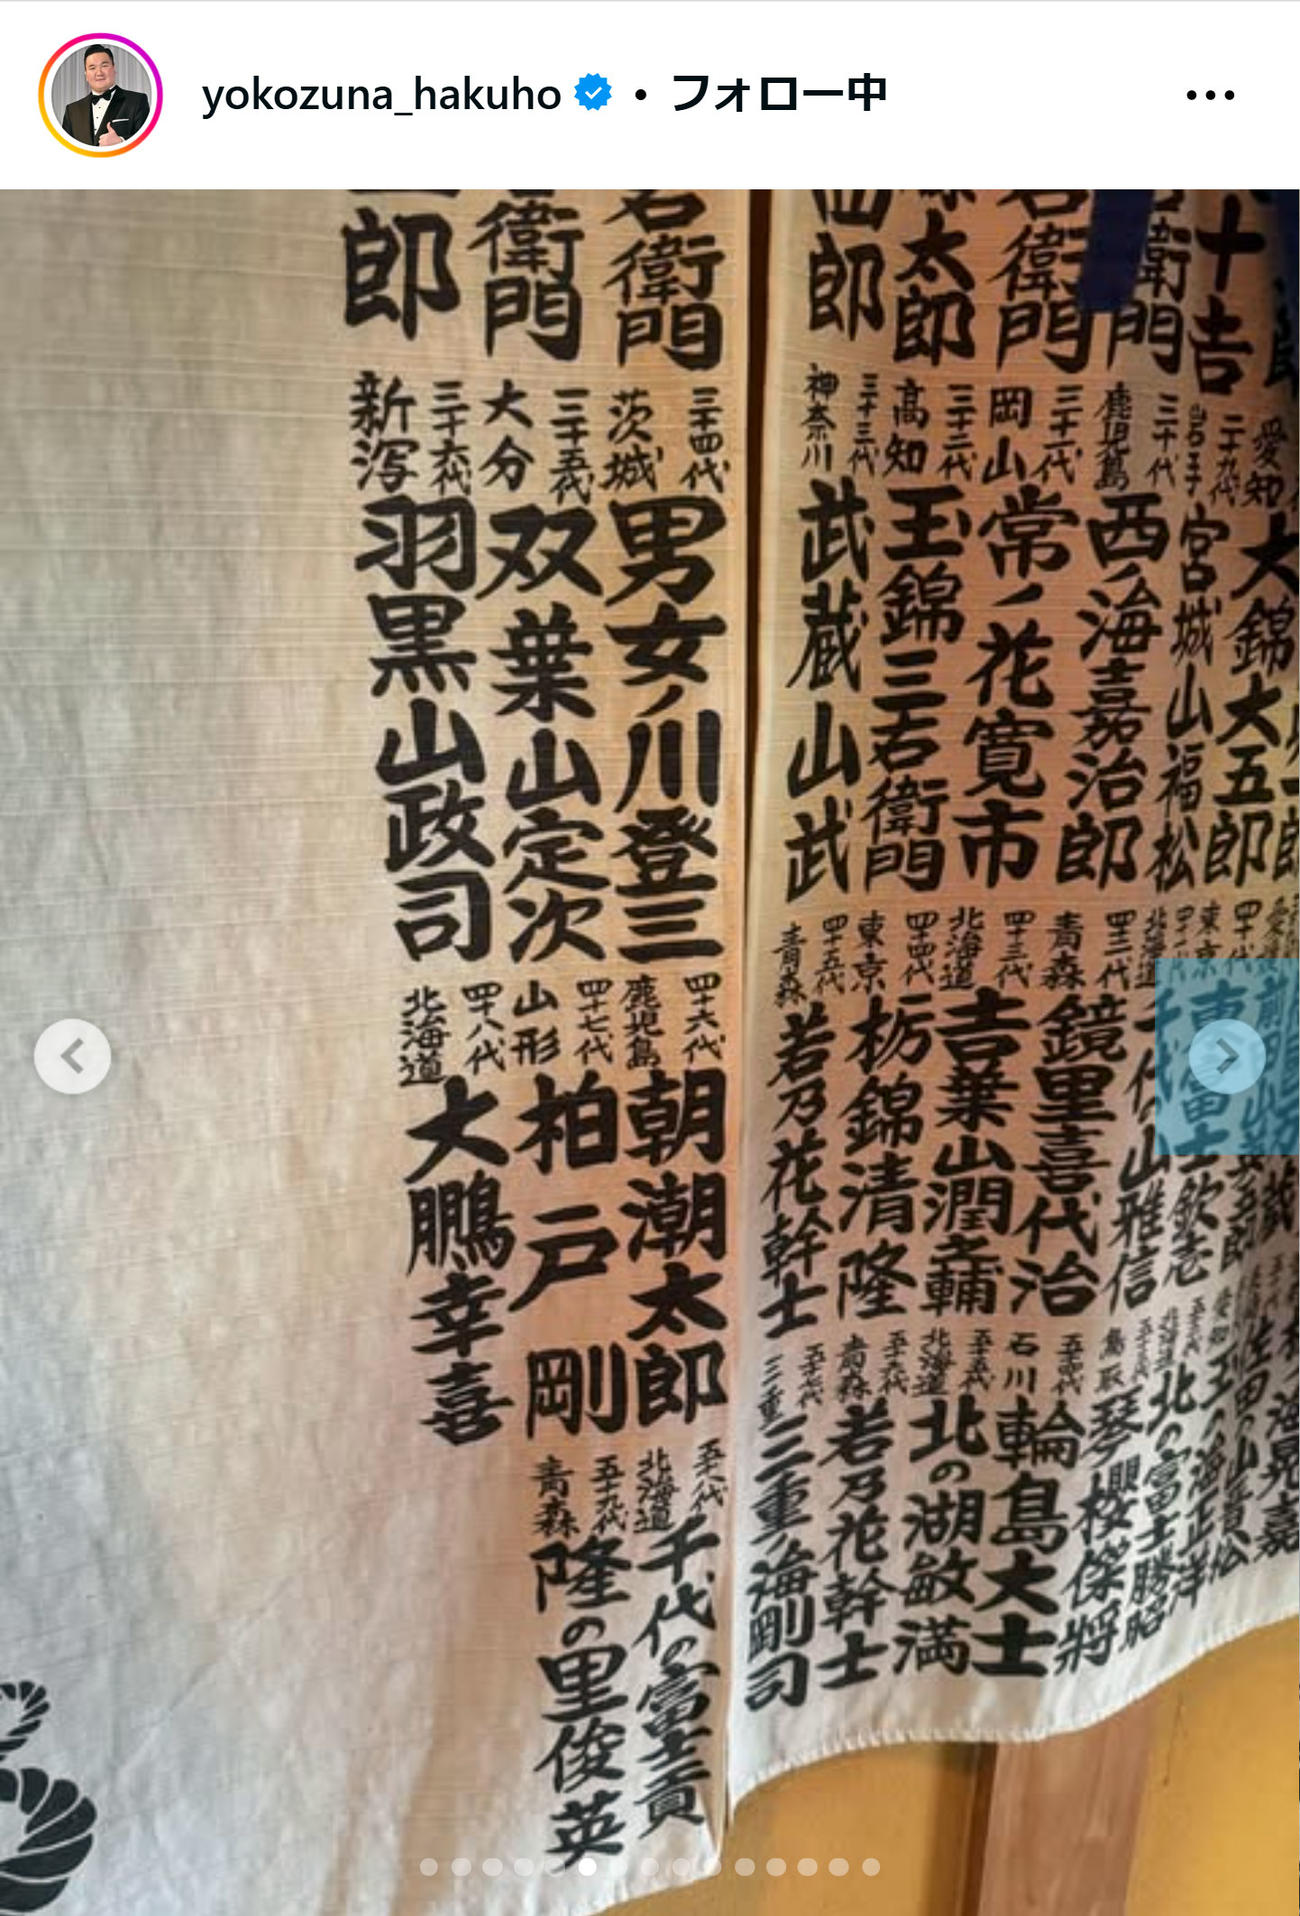 yokozuna_hakuho • フォロー中
十吉
衛門
右衛門
太郎
郎
右衛門
衛門
郎
愛知
大錦大五郎
二十九代
岩手
宮城山福松
三十代
鹿児島
西ノ海嘉治郎
三十一代
岡山
常ノ花寛市
三十二代
高知
玉錦三右衛門
三十三代
神奈川
武蔵山武
三十四代
茨城
男女ノ川登三
三十五代
大分
双葉山定次
三十六代
新潟
羽黒山政司
四十代
東京
東富士欽壱
北海道
千代の山雅信
四十二代
青森
鏡里喜代治
四十三代
北海道
吉葉山潤之輔
四十四代
東京
栃錦清隆
四十五代
青森
若乃花幹士
四十六代
鹿児島
朝潮太郎
四十七代
山形
柏戸剛
四十八代
北海道
大鵬幸喜
愛知
玉の海正洋
北海道
北の富士勝昭
鳥取
琴櫻傑將
五十四代
石川
輪島大士
五十五代
北海道
北の湖敏満
五十六代
青森
若乃花幹士
五十七代
三重
三重ノ海剛司
五十八代
北海道
千代の富士貢
五十九代
青森
隆の里俊英